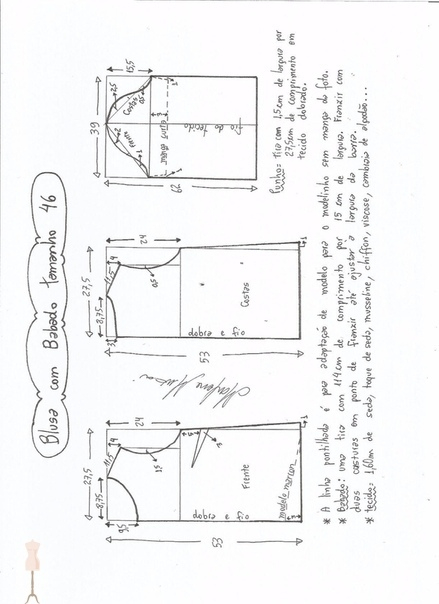 Blusa com Babado tamanho 46
27,5
8,75
11,5
4
9,5
24
15
3
Frente
dobra e fio
modelo marcan
53
1
27,5
8,75
11,5
4
24
Costas
dobra e fio
53
1
39
15,5
2,5
Costas
2
Frente
1
6
curta
manga
fio do tecido
62
Punho: tira com 1,5cm de largura por
27,5cm de comprimento em
tecido dobrado.
* A linha pontilhada é para adaptação de modelo para o modelinho sem manga da foto.
* Babado: uma tira com 114cm de comprimento por 15 cm de largura. Franzir com
duas costuras em ponto de franzir até ajustar a largura da barra.
* tecido: 1,60m de seda, toque de seda, musseline, chiffon, viscose, cambraia de algodão...